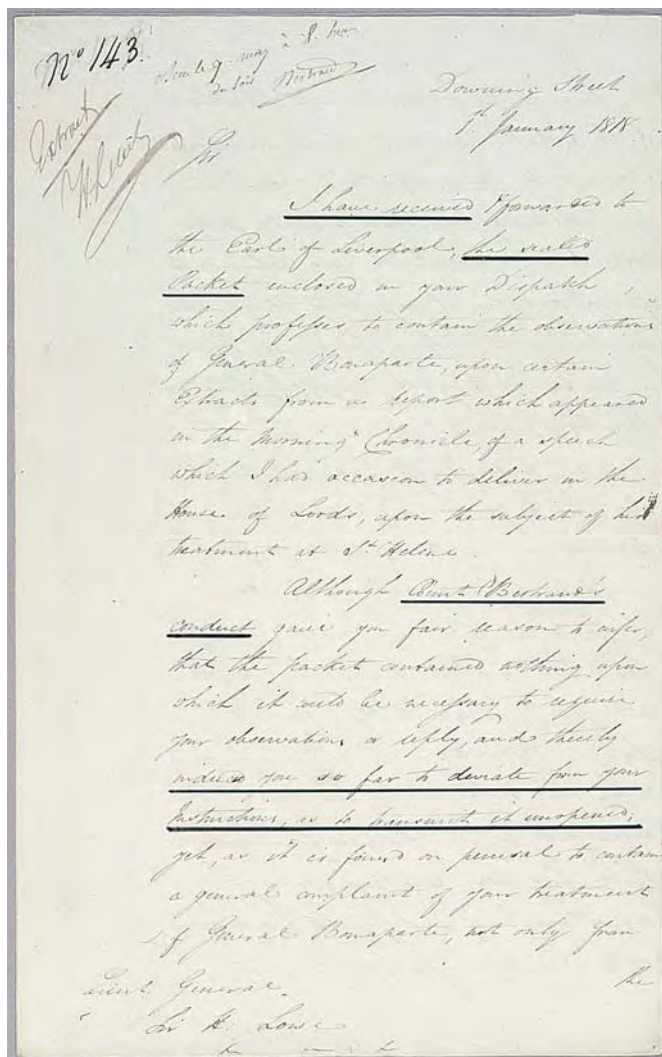 No 143.
à 8 heu
du soir Bertrand
Extract
Downing Street
1st January 1818.
Sir
I have received & forwarded to
the Earl of Liverpool, the sealed
Packet enclosed in your Dispatch,
which professes to contain the observations
of General Bonaparte, upon certain
Extracts from a report which appeared
in the Morning Chronicle, of a speech
which I had occasion to deliver in the
House of Lords, upon the subject of his
treatment at St Helena.
Although Count Bertrand's
conduct gave you fair reason to infer,
that the packet contained nothing upon
which it could be necessary to require
your observations or reply, and thereby
induced you so far to deviate from your
Instructions, as to transmit it unopened;
yet, as it is found on perusal to contain
a general complaint of your treatment
of General Bonaparte, not only from
the
Lieut. General.
Sir H. Lowe